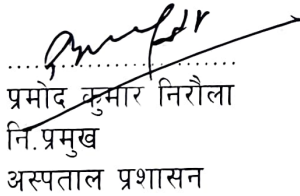 प्रमोद कुमार निरौला
नि.प्रमुख
अस्पताल प्रशासन